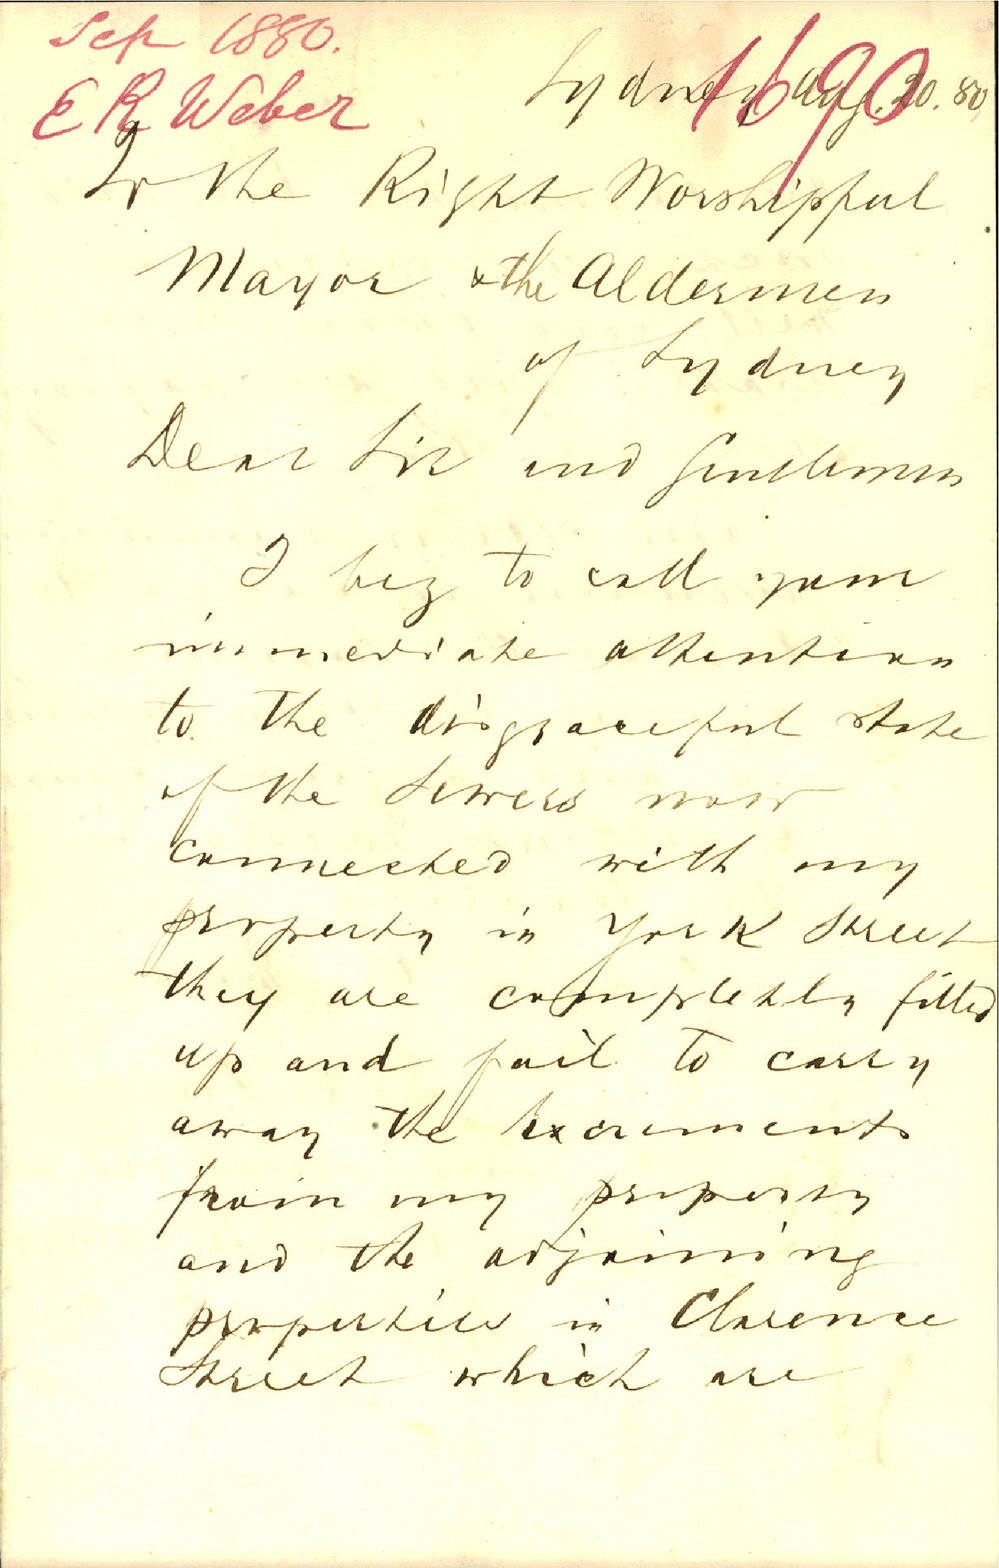 Sep 1880.
E R Weber
1690
Sydney Aug. 30. 80
To the Right Worshipful
Mayor & the Aldermen
of Sydney
Dear Sir and Gentlemen
I beg to call your
immediate attention
to the disgraceful state
of the Sewers now
connected with my
property in York Street
they are completely filled
up and fail to carry
away the Excrements
from my property
and the adjoining
properties in Clarence
Street which are